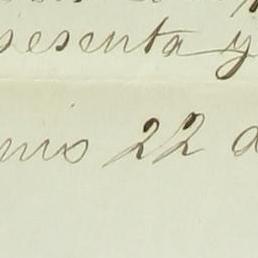 sesenta y
unio 22 d